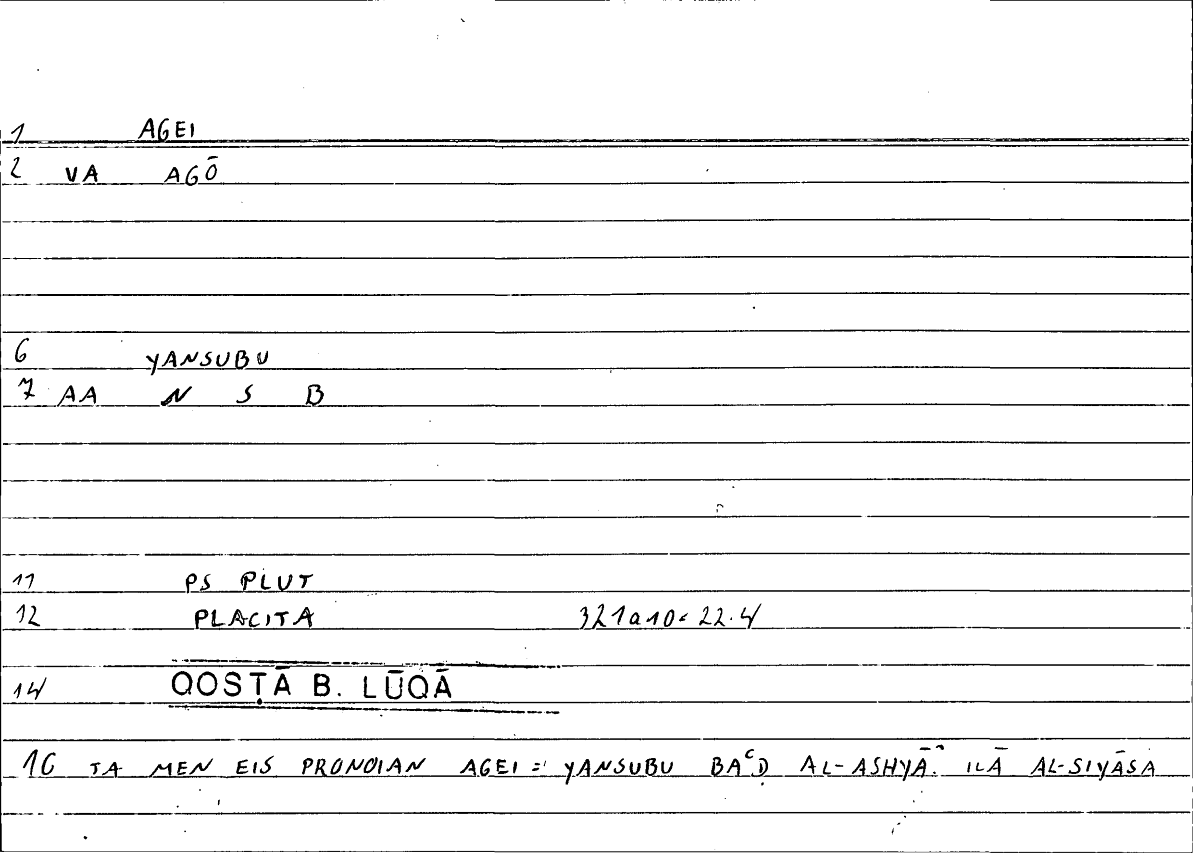 1 AGEI
2 VA AGŌ
6 YANSUBU
7 AA N S B
11 PS PLUT
12 PLACITA 321a10 = 22.4
14 QOSṬĀ B. LŪQĀ
16 TA MEN EIS PRONOIAN AGEI = YANSUBU BAᶜḌ AL-ASHYĀʾ ILĀ AL-SIYĀSA